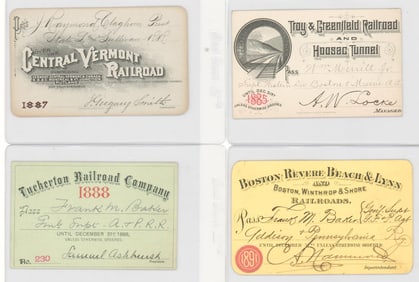 Pass J. Raymond Claghorn Prest
Sullivan R.R.
OVER
CENTRAL VERMONT
RAILROAD
1887
J. Gregory Smith
Troy & Greenfield Railroad
AND
Hoosac Tunnel
PASS Wm Merritt Jr.
Boston
UNTIL DEC. 31st
1885
UNLESS OTHERWISE ORDERED.
A. W. Locke
MANAGER
Tuckerton Railroad Company
1888
Pass Frank M. Baker
Supt. A. & P. R.R.
UNTIL DECEMBER 31st 1888,
UNLESS OTHERWISE ORDERED.
No. 230 Samuel Ashhurst
President
BOSTON, REVERE BEACH & LYNN
AND
BOSTON, WINTHROP & SHORE
RAILROADS.
Pass Frank M. Baker Genl Supt
Addison & Pennsylvania Ry
UNTIL DECEMBER 31st UNLESS OTHERWISE ORDERED
1891
C. A. Hammond
Superintendent